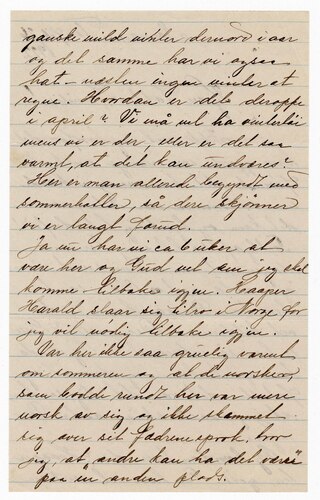 ganske mild vinter dernord i aar
og det samme har vi ogsaa
hat - næsten ingen vinter at
regne. Hvordan er det deroppe
i april? Vi må vel ha vintertøi
mens vi er der, eller er det saa
varmt, at det kan undværes?
Her er man allerede begyndt med
sommerhatter, så dere skjönner
vi er langt forud.
Ja nu har vi ca 6 uker at
være her og Gud vet om jeg skal
komme tilbake igjen. Haaper
Harald slaar sig tilro i Norge for
jeg vil nødig tilbake igjen.
Var her ikke saa gruelig varmt
om sommeren og at de norsker,
som bodde rundt her var mere
norsk av sig og ikke skammet
sig over sit fædrenesprok, tror
jeg, at andre kan ha det værre
paa en anden plads.